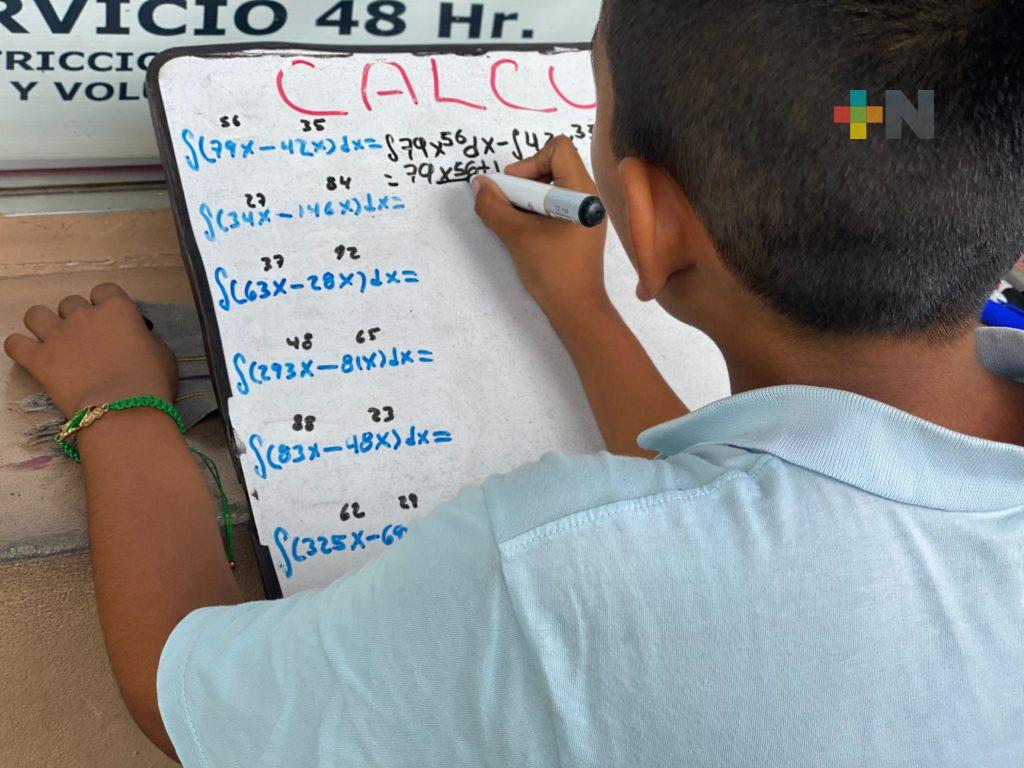 RVICIO 48 Hr.
TRICCIO
Y VOLU
+N
CALCU
∫(79x⁵⁶ − 42x³⁵)dx = ∫79x⁵⁶dx − ∫42
= 79x56+1
∫(34x²⁷ − 146x⁸⁴)dx =
∫(63x³⁷ − 28x⁹²)dx =
∫(293x⁴⁸ − 81x⁶⁵)dx =
∫(83x⁸⁸ − 48x²³)dx =
∫(325x⁶² − 69 ²⁹